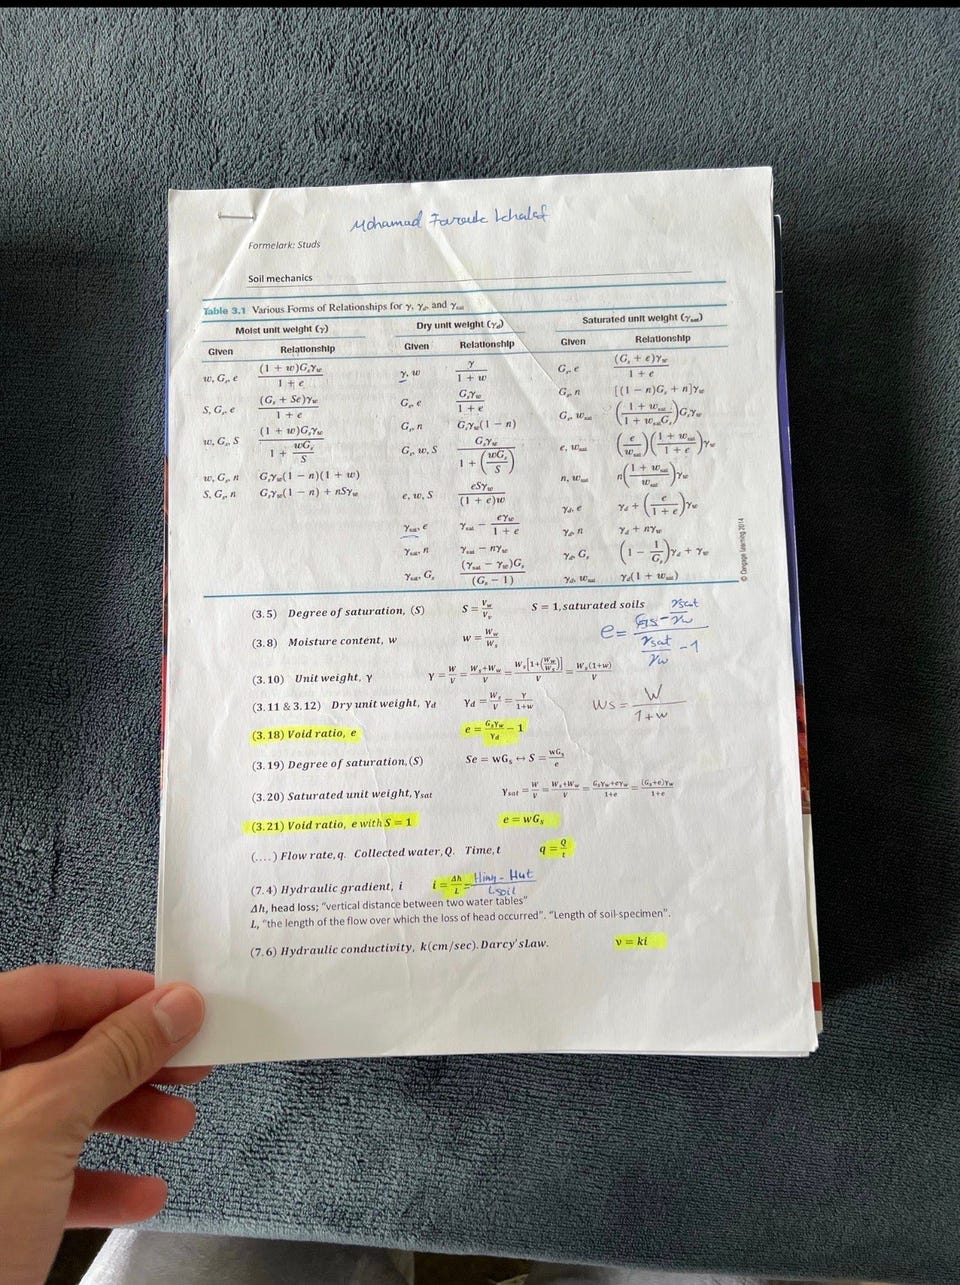 Mohamad Farouk Khalaf
Formelark: Studs
Soil mechanics
Table 3.1 Various Forms of Relationships for γ, γd, and γsat
Moist unit weight (γ) Dry unit weight (γd) Saturated unit weight (γsat)
Given Relationship Given Relationship Given Relationship
w, Gs, e (1 + w)Gsγw / 1 + e γ, w γ / 1 + w Gs, e (Gs + e)γw / 1 + e
S, Gs, e (Gs + Se)γw / 1 + e Gs, e Gsγw / 1 + e Gs, n [(1 − n)Gs + n]γw
w, Gs, S (1 + w)Gsγw / 1 + wGs/S Gs, n Gsγw(1 − n) Gs, wsat (1 + wsat / 1 + wsatGs)Gsγw
w, Gs, n Gsγw(1 − n)(1 + w) Gs, w, S Gsγw / 1 + (wGs/S) e, wsat (e/wsat)(1 + wsat / 1 + e)γw
S, Gs, n Gsγw(1 − n) + nSγw e, w, S eSγw / (1 + e)w n, wsat n(1 + wsat / wsat)γw
γsat, e γsat − eγw / 1 + e γd, e γd + (e / 1 + e)γw
γsat, n γsat − nγw γd, n γd + nγw
γsat, Gs (γsat − γw)Gs / (Gs − 1) γd, Gs (1 − 1/Gs)γd + γw
γd, wsat γd(1 + wsat)
© Cengage Learning 2014
(3.5) Degree of saturation, (S) S = Vw/Vv S = 1, saturated soils
e = Gs − γsat/γw / γsat/γw − 1
(3.8) Moisture content, w w = Ww/Ws
(3.10) Unit weight, γ γ = W/V = Ws+Ww/V = Ws[1+(Ww/Ws)]/V = Ws(1+w)/V
(3.11 & 3.12) Dry unit weight, γd γd = Ws/V = γ/1+w Ws = W / 1+w
(3.18) Void ratio, e e = Gsγw/γd − 1
(3.19) Degree of saturation, (S) Se = wGs ↔ S = wGs/e
(3.20) Saturated unit weight, γsat γsat = W/V = Ws+Ww/V = Gsγw+eγw/1+e = (Gs+e)γw/1+e
(3.21) Void ratio, e with S = 1 e = wGs
(....) Flow rate, q. Collected water, Q. Time, t q = Q/t
(7.4) Hydraulic gradient, i i = Δh/L = Hinn - Hut / Lsoil
Δh, head loss; "vertical distance between two water tables"
L, "the length of the flow over which the loss of head occurred". "Length of soil-specimen".
(7.6) Hydraulic conductivity, k(cm/sec). Darcy'sLaw. v = ki